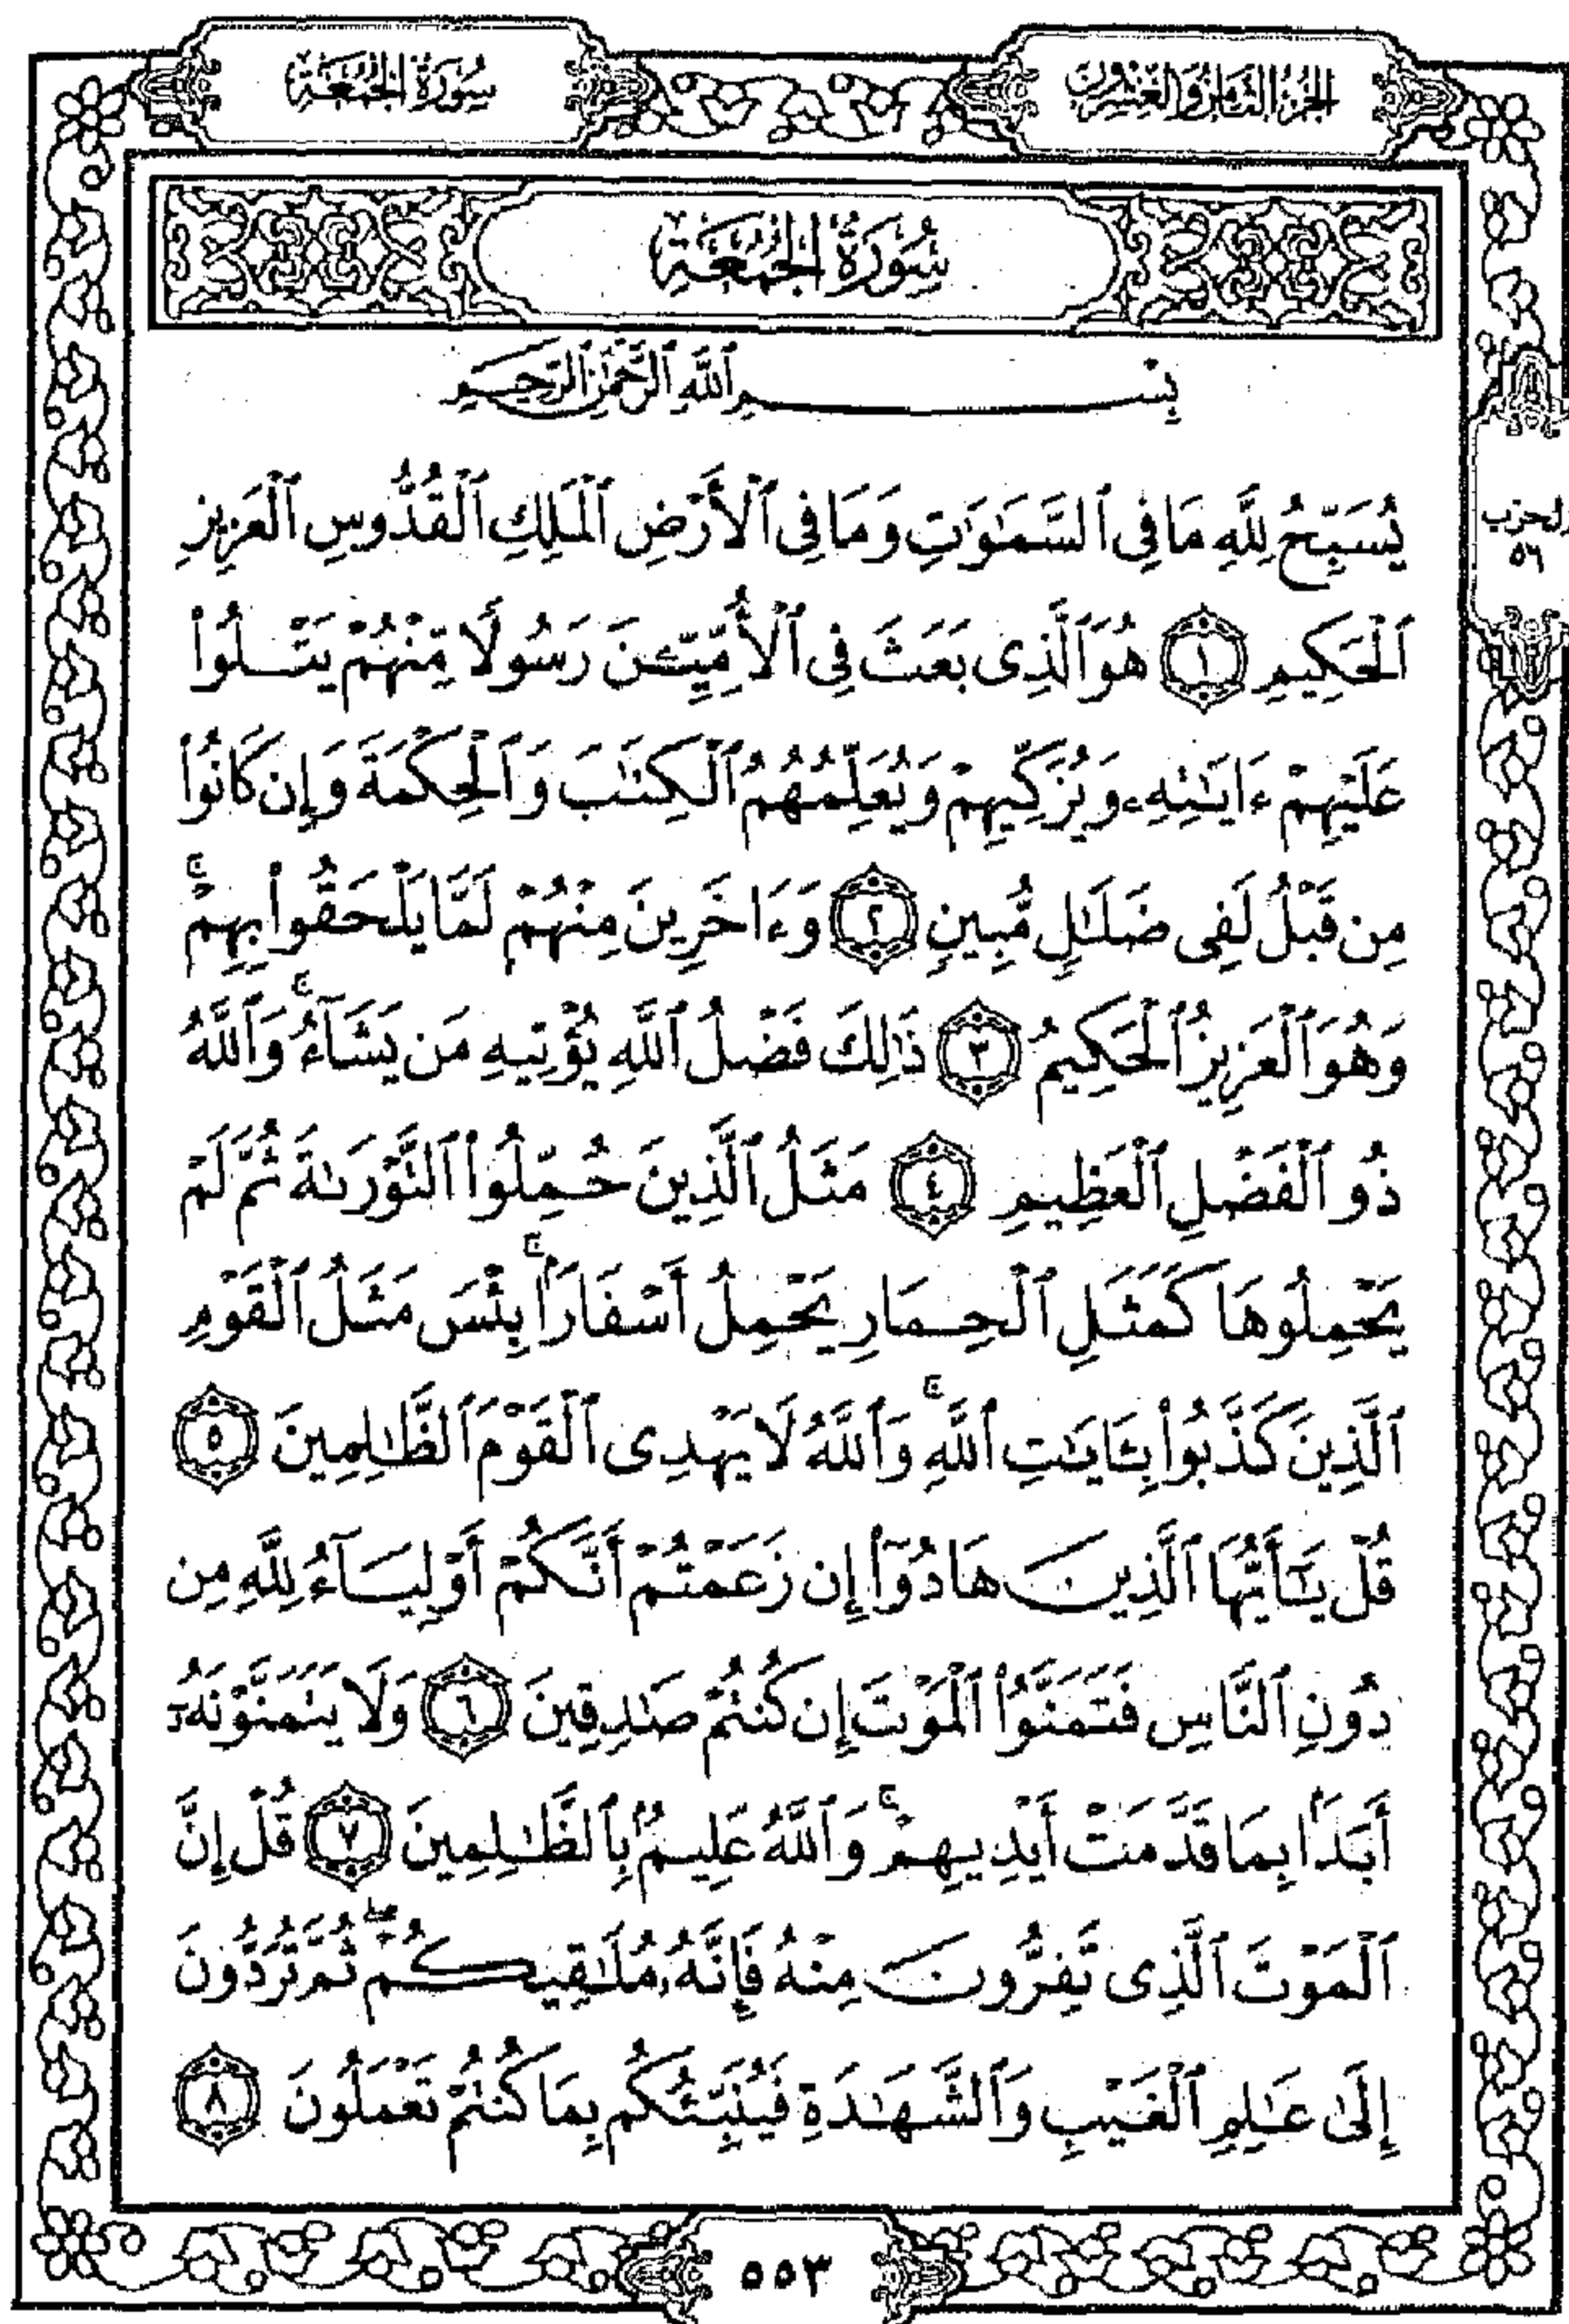 الجزء الثامن والعشرون
سُورَةُ الْجُمُعَةِ
سُورَةُ الْجُمُعَةِ
بِسْمِ ٱللَّهِ ٱلرَّحْمَٰنِ ٱلرَّحِيمِ
يُسَبِّحُ لِلَّهِ مَا فِى ٱلسَّمَٰوَٰتِ وَمَا فِى ٱلْأَرْضِ ٱلْمَلِكِ ٱلْقُدُّوسِ ٱلْعَزِيزِ
ٱلْحَكِيمِ ١ هُوَ ٱلَّذِى بَعَثَ فِى ٱلْأُمِّيِّـۧنَ رَسُولًا مِّنْهُمْ يَتْلُوا۟
عَلَيْهِمْ ءَايَٰتِهِۦ وَيُزَكِّيهِمْ وَيُعَلِّمُهُمُ ٱلْكِتَٰبَ وَٱلْحِكْمَةَ وَإِن كَانُوا۟
مِن قَبْلُ لَفِى ضَلَٰلٍ مُّبِينٍ ٢ وَءَاخَرِينَ مِنْهُمْ لَمَّا يَلْحَقُوا۟ بِهِمْ ۚ
وَهُوَ ٱلْعَزِيزُ ٱلْحَكِيمُ ٣ ذَٰلِكَ فَضْلُ ٱللَّهِ يُؤْتِيهِ مَن يَشَآءُ ۚ وَٱللَّهُ
ذُو ٱلْفَضْلِ ٱلْعَظِيمِ ٤ مَثَلُ ٱلَّذِينَ حُمِّلُوا۟ ٱلتَّوْرَىٰةَ ثُمَّ لَمْ
يَحْمِلُوهَا كَمَثَلِ ٱلْحِمَارِ يَحْمِلُ أَسْفَارًۢا ۚ بِئْسَ مَثَلُ ٱلْقَوْمِ
ٱلَّذِينَ كَذَّبُوا۟ بِـَٔايَٰتِ ٱللَّهِ ۚ وَٱللَّهُ لَا يَهْدِى ٱلْقَوْمَ ٱلظَّٰلِمِينَ ٥
قُلْ يَٰٓأَيُّهَا ٱلَّذِينَ هَادُوٓا۟ إِن زَعَمْتُمْ أَنَّكُمْ أَوْلِيَآءُ لِلَّهِ مِن
دُونِ ٱلنَّاسِ فَتَمَنَّوُا۟ ٱلْمَوْتَ إِن كُنتُمْ صَٰدِقِينَ ٦ وَلَا يَتَمَنَّوْنَهُۥٓ
أَبَدًۢا بِمَا قَدَّمَتْ أَيْدِيهِمْ ۚ وَٱللَّهُ عَلِيمٌۢ بِٱلظَّٰلِمِينَ ٧ قُلْ إِنَّ
ٱلْمَوْتَ ٱلَّذِى تَفِرُّونَ مِنْهُ فَإِنَّهُۥ مُلَٰقِيكُمْ ۖ ثُمَّ تُرَدُّونَ
إِلَىٰ عَٰلِمِ ٱلْغَيْبِ وَٱلشَّهَٰدَةِ فَيُنَبِّئُكُم بِمَا كُنتُمْ تَعْمَلُونَ ٨
الحزب
٥٦
٥٥٣